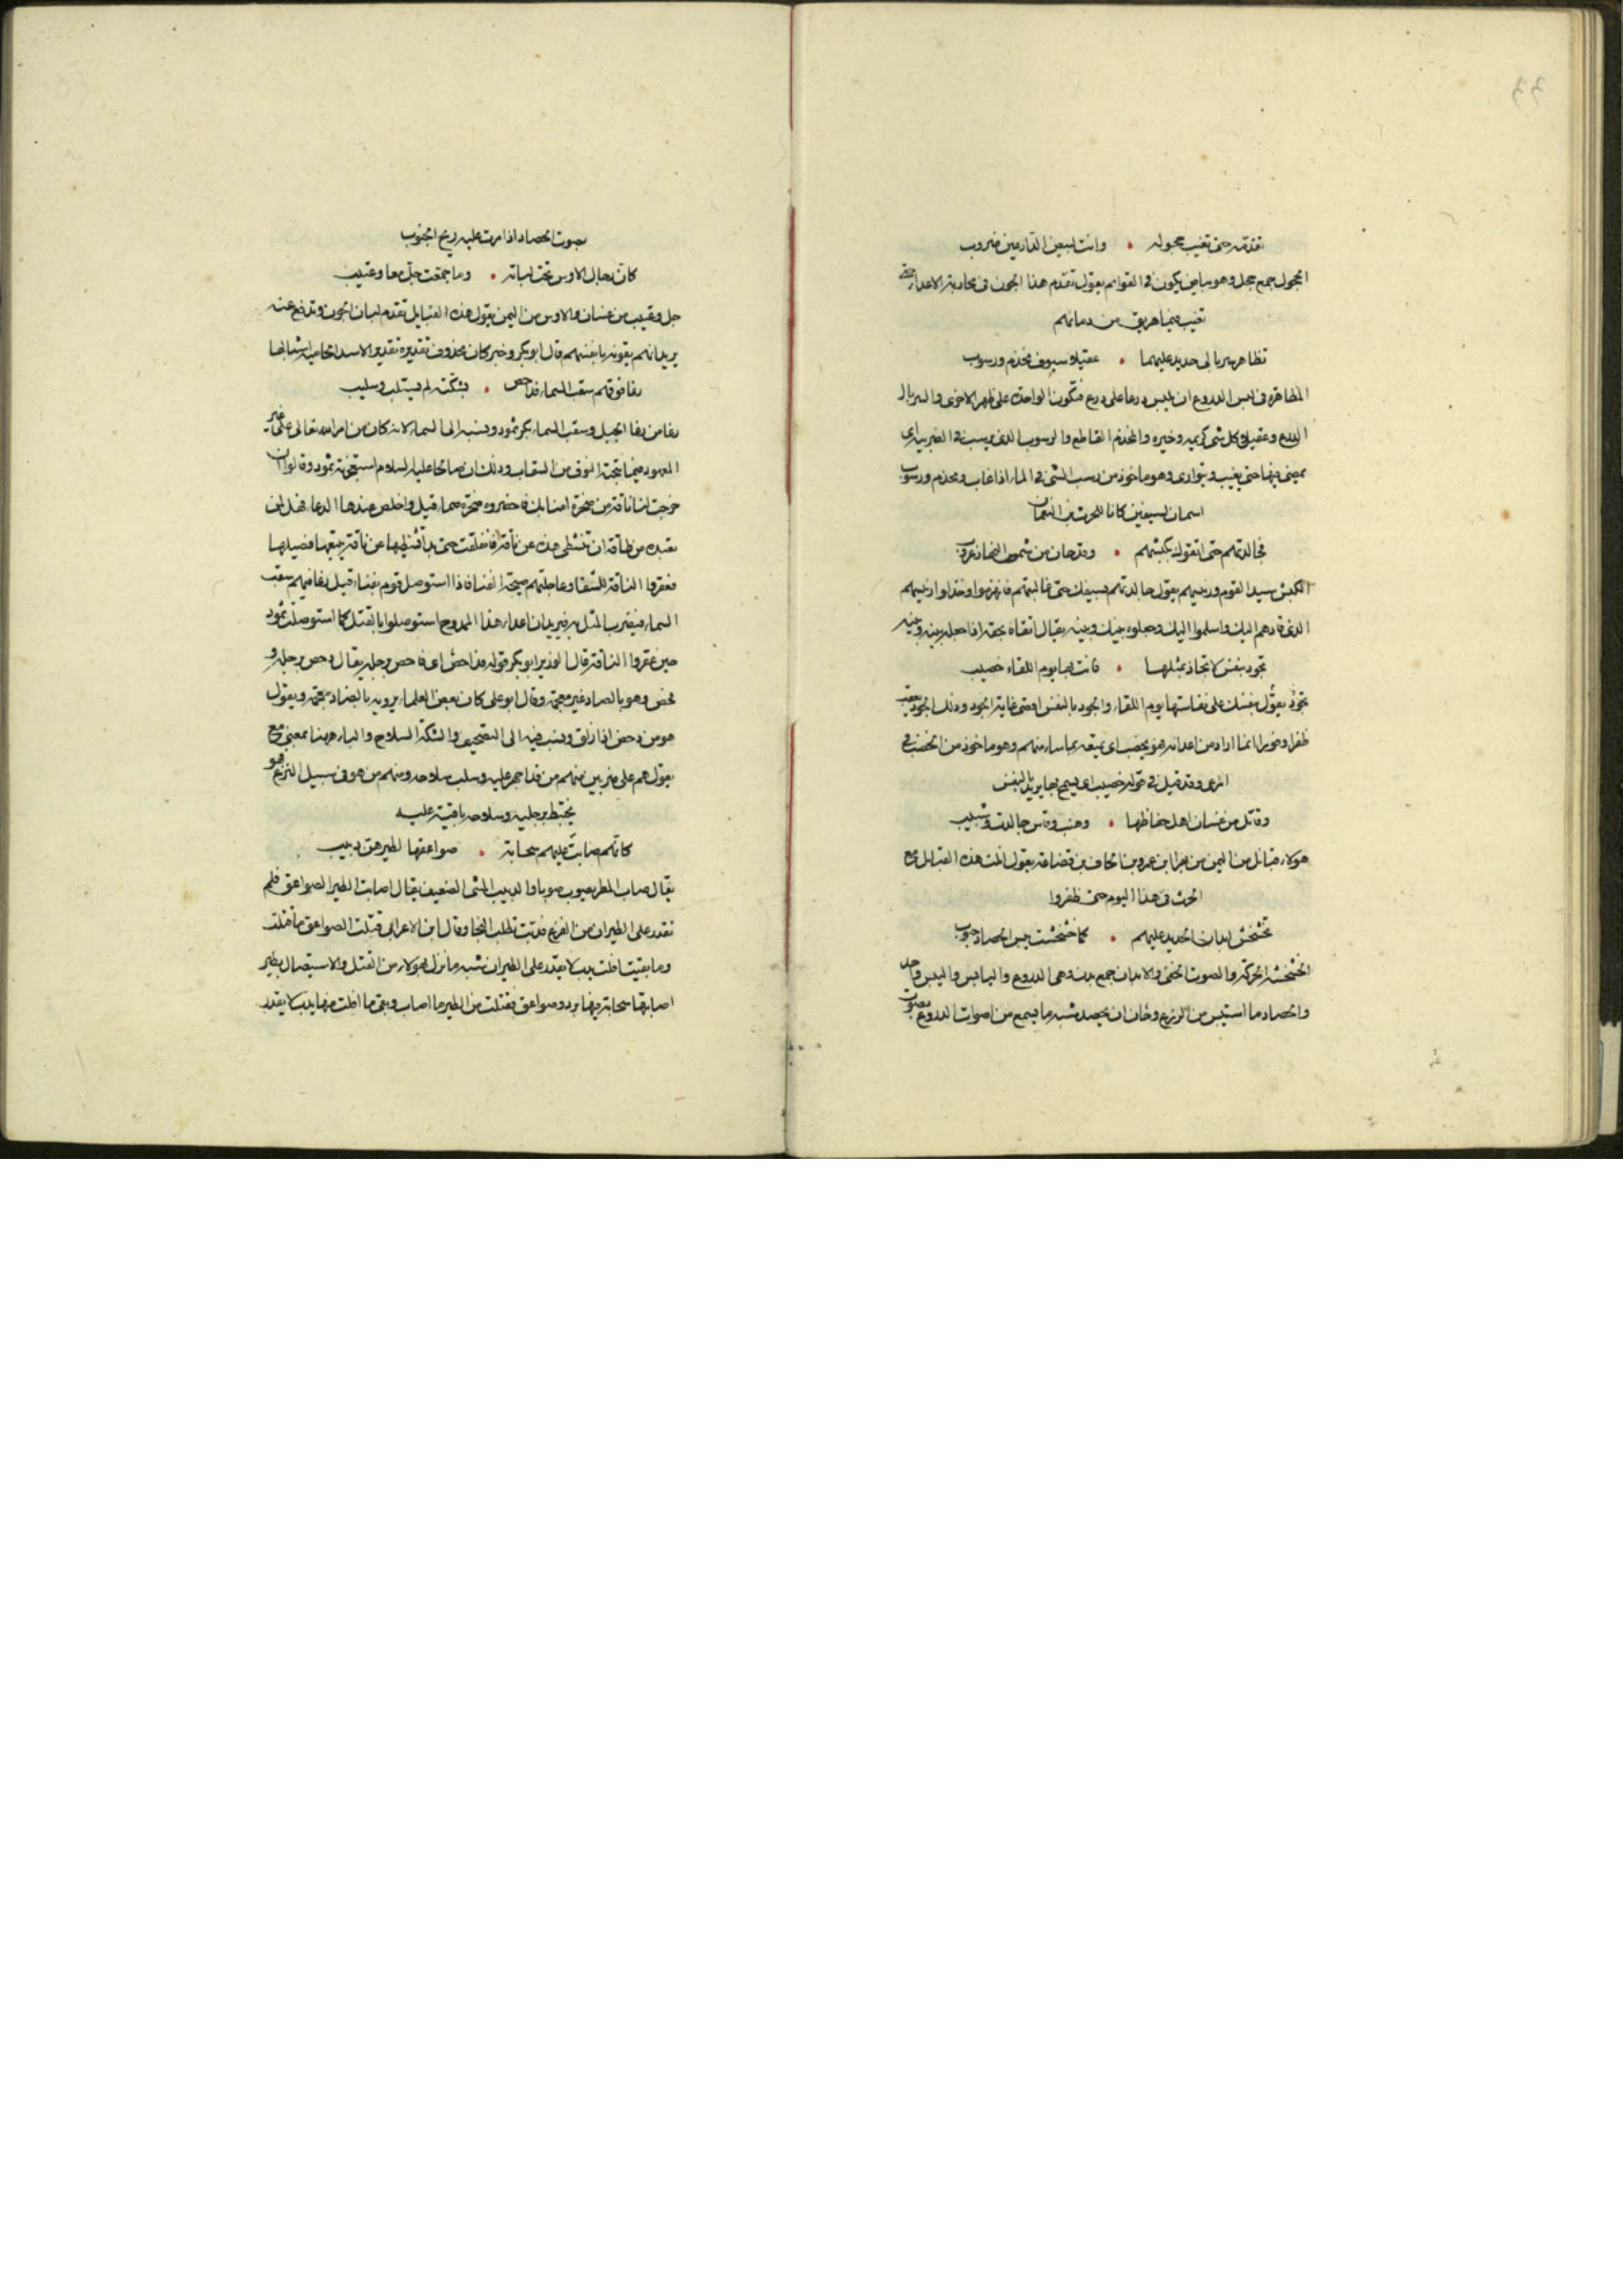 تقدمه حتى تغيب حجوله • وانت لبيض الدارعين ضروب
الحجول جمع حجل وهو بياض يكون في القوائم يقول تقدم هذا الجون في محاربة الاعداء حتى
تغيب فيما هريق من دمائهم
تظاهر سربالى حديد عليهما • عقيلا سيوف مخذم ورسوب
المظاهرة في لبس الدروع ان يلبس درعا على درع فتكون الواحدة على ظهر الاخرى والسربال
الدرع وعقيلة كل شى كريمه وخيره والمخذم القاطع والرسوب الذي يرسب في الضريبة اى
يمضى فيها حتى يغيب ويتوارى وهو ماخوذ من رسب الشى في الماء اذا غاب ومخذم ورسوب
اسمان لسيفين كانا للحرث بن النعمان
فجالدتهم حتى اتقوك بكبشهم • وقد حان من شمس النهار غروب
الكبش سيد القوم ورئيسهم يقول جالدتهم بسيفك حتى غالبتهم فانهزموا وخذلوا رئيسهم
الذى قادهم اليك واسلموا اليك وجعلوه بينك وبينهم يقال اتقاه بحقه اذا جعله بينه وبينه
تجود بنفس لا يجاد بمثلها • فانت بها يوم اللقاء خصيب
تجود يقول بنفسك على نفاستها يوم اللقاء والجود بالنفس اقصى غاية الجود وذلك الجود يعقب
ظفرا وفوزا انما اراد من اعدائه فهو يخصب اى يتيقه بما ساء منهم وهو ماخوذ من الخصب في
المرعى وقد قيل في قوله خصيب اى يسمح بها يريد النفس
وقاتل من غسان اهل حفاظها • وهنب وقاس جالدت وشبيب
هولاء قبائل من اليمن من بهرا بن عمرو بن الحاف بن قضاعة يقول اتت هذه القبائل مع
الحرث في هذا اليوم حتى ظفروا
تخشخش ابدان الحديد عليهم • كما خشخشت يبس الحصاد جنوب
الخشخشة الحركة والصوت الخفى والابدان جمع بدن وهى الدروع واليابس واليبس واحد
والحصاد ما استيبس من الزرع وحان ان يحصد شبه ما يسمع من اصوات الدروع بصوت
بصوت الحصاد اذا مرت عليه ريح الجنوب
كان رجال الاوس تحت لبانه • وما جمعت جل معا وعتيب
جل وعتيب من غسان والاوس من اليمن يقول هذه القبايل تقدم لبان الجون وتدفع عنه
يريد انهم يقونه بانفسهم قال ابو بكر وخبر كان محذوف تقديره تقدير الاسد الحامية اشبالها
رغا فوقهم سقب السماء فداحص • بشكته لم يستلب وسليب
رغا من رغا الجمل وسقب السماء بكر ثمود ونسبه الى السماء لانه كان من امر الله تعالى على غير
المعهود فيما ينتجه النوق من السقاب وذلك ان صالحا عليه السلام استخبرته ثمود وقالوا ان
خرجت لنا ناقة من صخرة امنا بك فاحضروه صخرة صماء قيل واخلص عندها الدعاء فقال لمن
يعبده من طاقة ان تنشطى هذه عن ناقة فانفلقت حتى بدا تشظيها عن ناقة يتبعها فصيلها
فعقروا الناقة للشقا وعاجلتهم صيحة الفناء فاذا استوصل قوم بفناء قيل رغا فيهم سقب
السماء فيضرب المثل به فيريد ان اعداء هذا الممدوح استوصلوا بالقتل كما استوصلت ثمود
حين عقروا الناقة قال الوزير ابو بكر قوله فداحص اى فاحص برجله يقال دحص برجله و
فحص وهو بالصاد غير معجمة وقال ابو على كان بعض العلماء يرويه بالضاد معجمة ويقول
هو من دحض اذا زلق ونسب فيه الى التصحيف والشكة السلاح والباء ههنا بمعنى مع
يقول هم على ضربين منهم من قد اجهز عليه وسلب سلاحه ومنهم من هو في سبيل النزع فهو
يختبط برجليه وسلاحه باقية عليه
كانهم صابت عليهم سحابة • صواعقها لطيرهن دبيب
يقال صاب المطر يصوب صوبا والدبيب المشى الضعيف يقال اصابت الطير الصواعق فلم
تقدر على الطيران من الفزع فدبت تطلب النجا وقال ابن الاعرابى قتلت الصواعق ما قتلت
وما بقيت افلت يدب لا يقدر على الطيران شبه ما نزل بهولاء من القتل والاستيصال بطير
اصابتها سحابة فيها برد وصواعق فقتلت من الطير ما اصاب وبقى ما افلت منها يدب لا يقدر